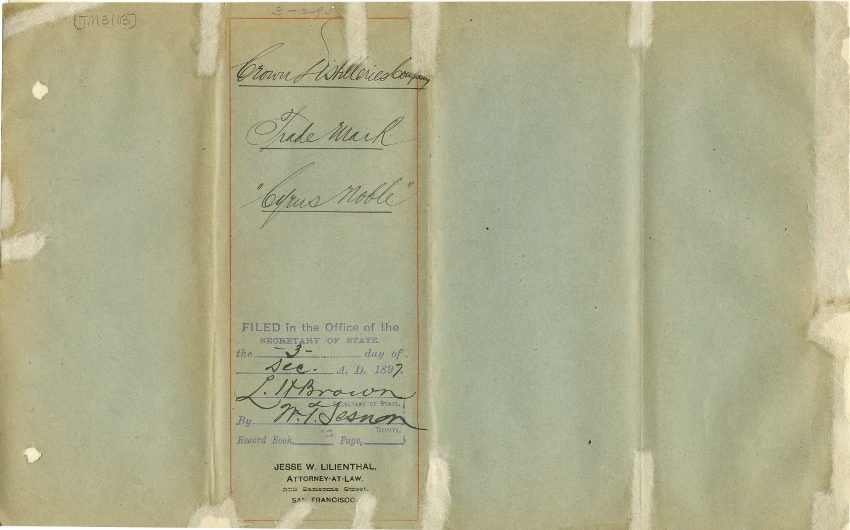 (TM3103)
Crown Distilleries Company
Trade Mark
"Cyrus Noble"
FILED in the Office of the
SECRETARY OF STATE,
the -3- day of
Dec. A. D. 1897.
L. H Brown
SECRETARY OF STATE.
By W. T. Sesnon
DEPUTY.
Record Book, Page,
JESSE W. LILIENTHAL,
ATTORNEY-AT-LAW,
Sansome Street,
SAN FRANCISCO.